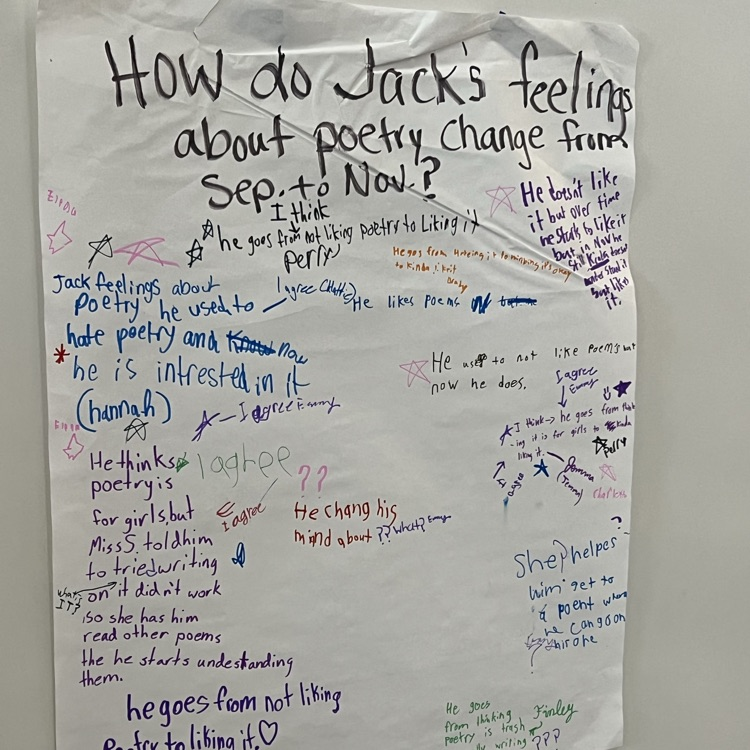 How do Jack's feelings
about poetry change from
Sep. to Nov.?
I think
he goes from not liking poetry to Liking it
perry
He doesn't like
it but over time
he starts to like it
but in Nov he
still Kinda doesn't
it.
He goes from
to Kinda like it
Emma
Jack feelings about
poetry he used to
hate poetry and now
he is intrested in it
(hannah)
I agree
He likes poems
He used to not like poem's but
now he does.
I agree
Emmy
I think → he goes from think
-ing it is for girls to kinda
liking it.
perry
I agree
I agree Emmy
Emma
He thinks
poetry is
for girls, but
Miss S. told him
to tried writing
on it didn't work
so she has him
read other poems
the he starts undestanding
them.
what
IT?
I aghee
I agree
??
He chang his
mind about ?? What? Emmy
?
She helpes
him get to
a poent where
he can go on
his one
he goes from not liking
Poetry to liking it. ♡
He goes
from thinking
poetry is trash
writing ???
Finley